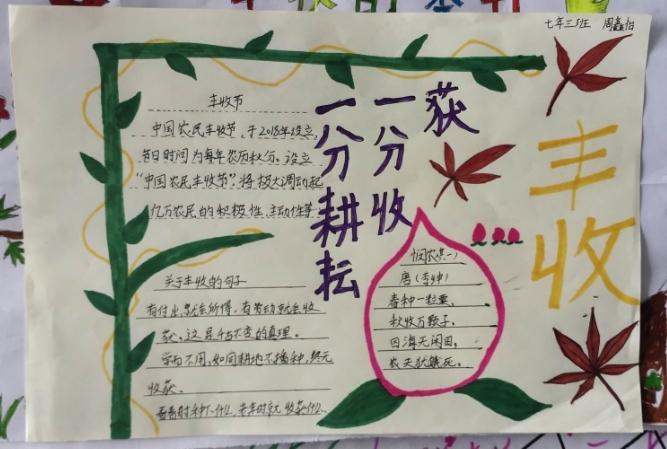 七年三班 周鑫怡
丰收
一分耕耘
一分收
获
丰收节
中国农民丰收节,于2018年设立,
节日时间为每年农历秋分。设立
“中国农民丰收节”,将极大调动起
亿万农民的积极性、主动性等
关于丰收的句子
有付出,就会所得,有劳动就会收
获,这是千古不变的真理。
学而不用,如同耕地不播种,终无
收获。
春春时种下什么,来年时就收获什么.
悯农(其一)
唐(李绅)
春种一粒粟,
秋收万颗子,
四海无闲田,
农夫犹饿死。